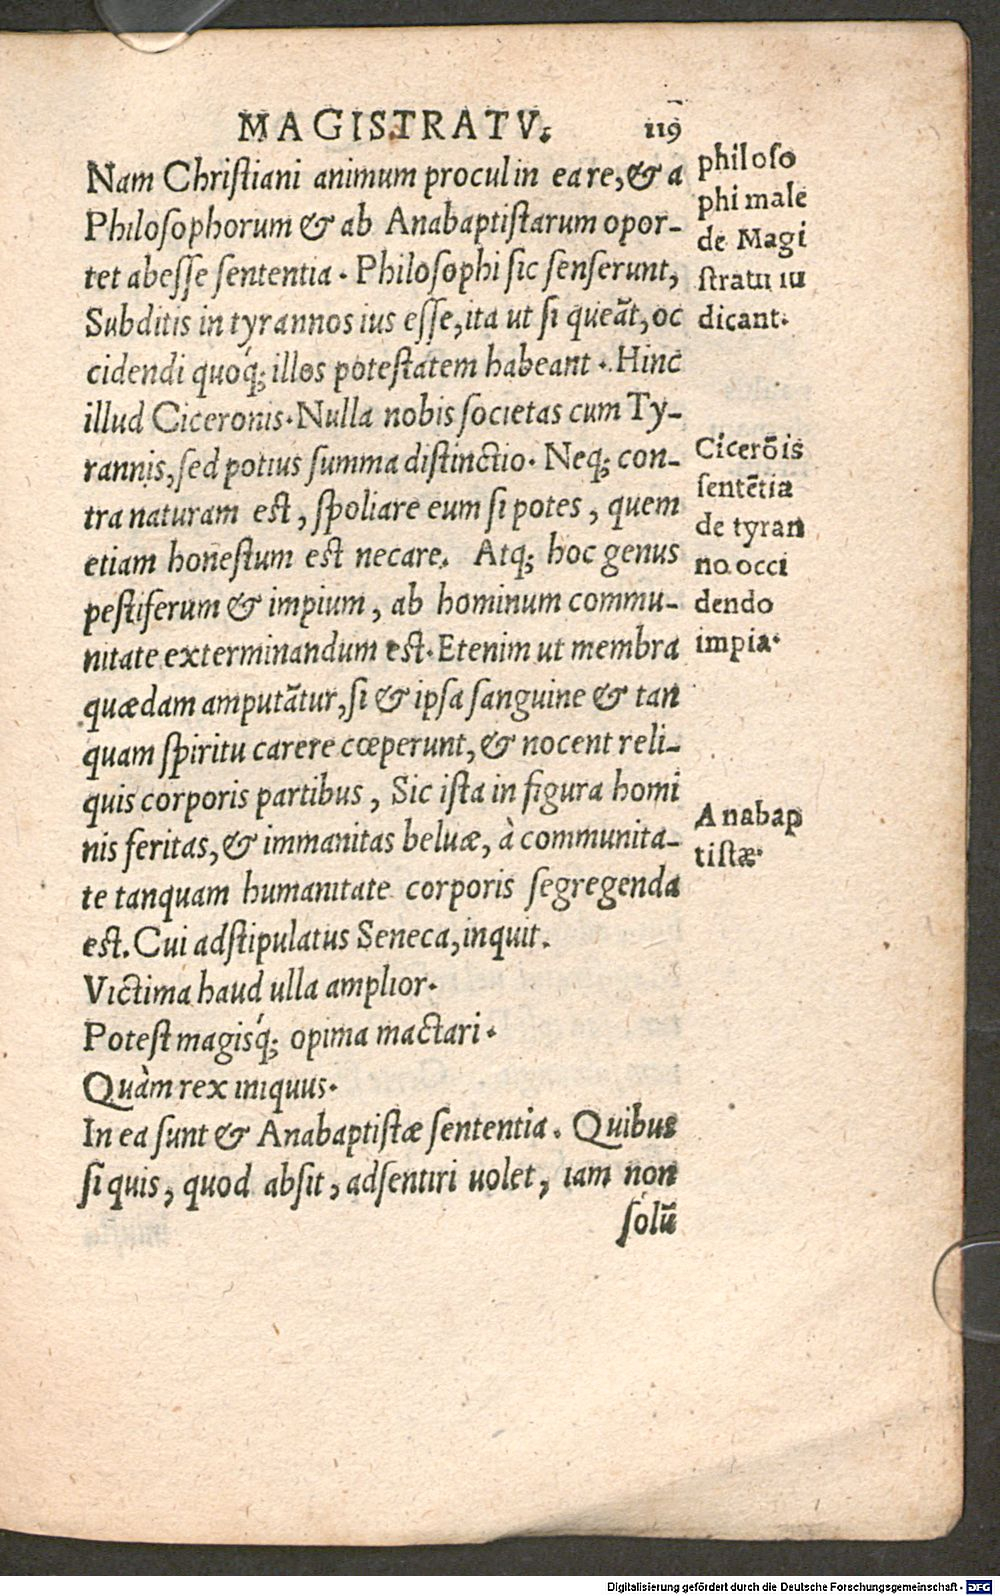 MAGISTRATV. 119
Nam Chriſtiani animum procul in ea re, & a
Philoſophorum & ab Anabaptiſtarum opor-
tet abeſſe ſententia. Philoſophi ſic ſenſerunt,
Subditis in tyrannos ius eſſe, ita ut ſi queāt, oc
cidendi quoq́; illos poteſtatem habeant. Hinc
illud Ciceronis. Nulla nobis ſocietas cum Ty-
rannis, ſed potius ſumma diſtinctio. Neq; con-
tra naturam eſt, ſpoliare eum ſi potes, quem
etiam honeſtum eſt necare. Atq; hoc genus
peſtiferum & impium, ab hominum commu-
nitate exterminandum eſt. Etenim ut membra
quædam amputātur, ſi & ipſa ſanguine & tan
quam ſpiritu carere cœperunt, & nocent reli-
quis corporis partibus, Sic iſta in figura homi
nis feritas, & immanitas beluæ, à communita-
te tanquam humanitate corporis ſegregenda
eſt. Cui adſtipulatus Seneca, inquit.
Victima haud ulla amplior.
Poteſt magisq́; opima mactari.
Quàm rex iniquus.
In ea ſunt & Anabaptiſtæ ſententia. Quibus
ſi quis, quod abſit, adſentiri uolet, iam non
ſolū
philoſo
phi male
de Magi
ſtratu iu
dicant.
Cicerōis
ſentētia
de tyran
no occi
dendo
impia.
Anabap
tiſtæ.
Digitalisierung gefördert durch die Deutsche Forschungsgemeinschaft - DFG